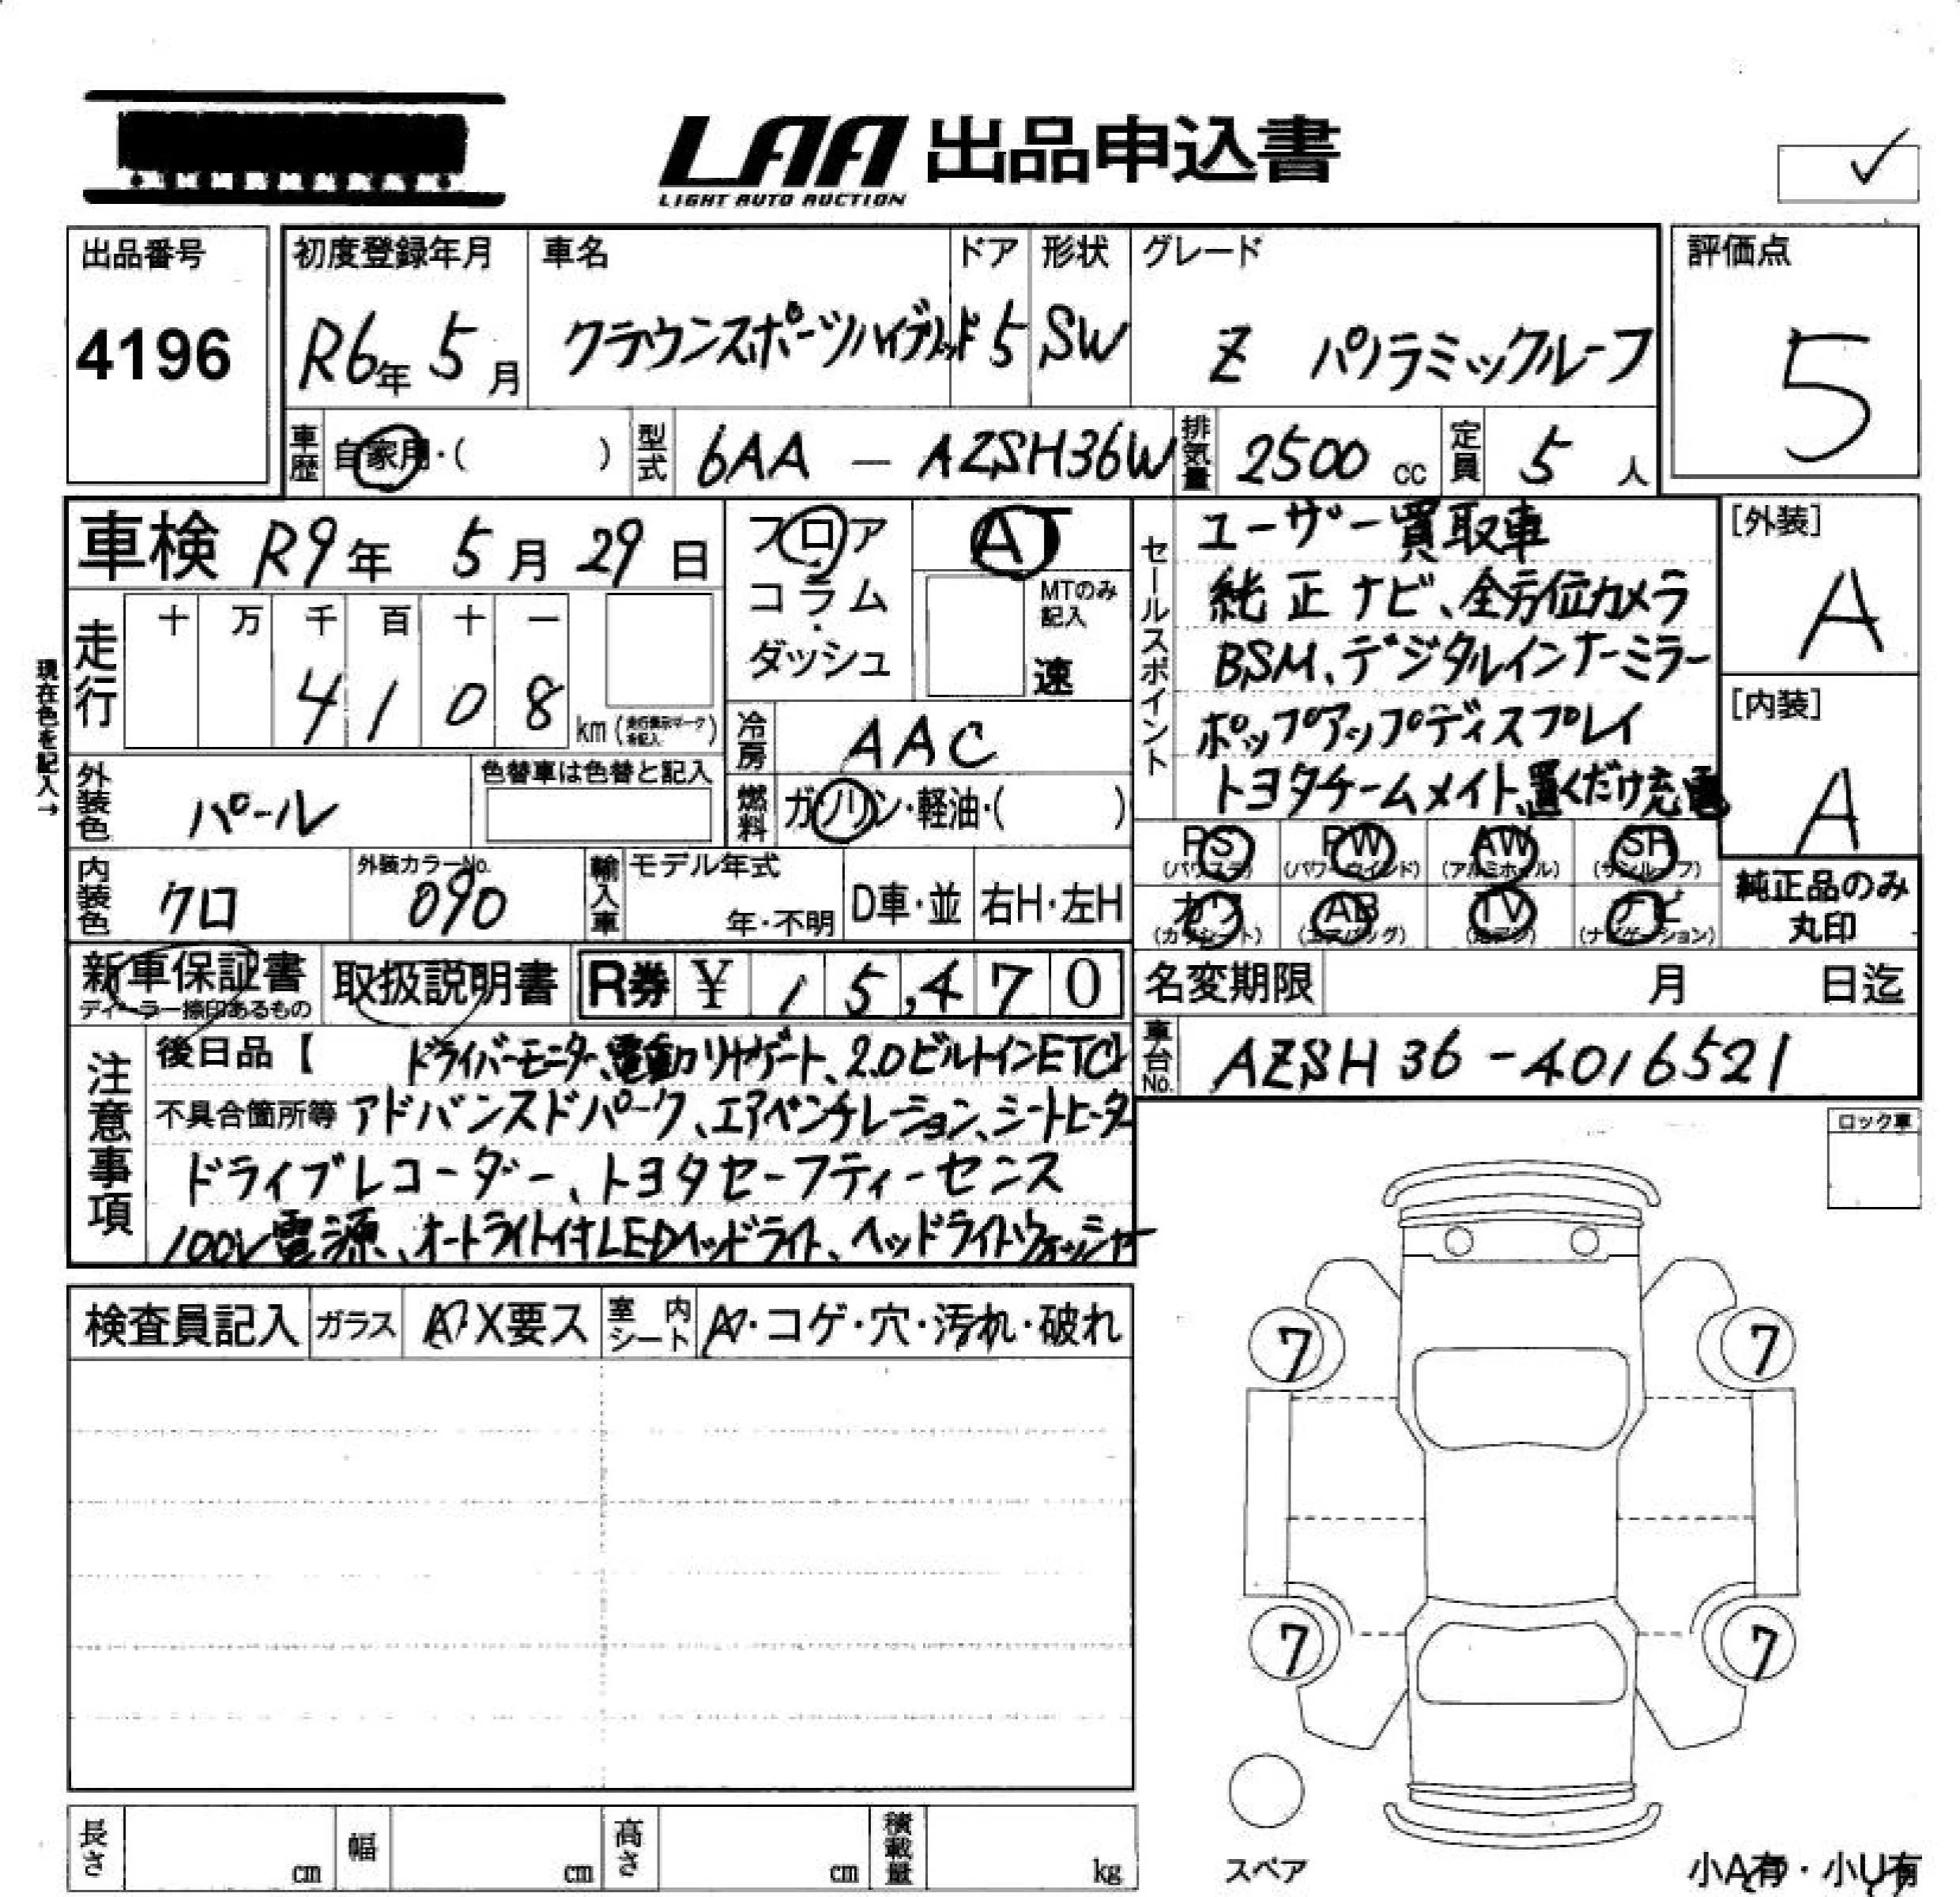 LAA 出品申込書
LIGHT AUTO AUCTION
出品番号
4196
初度登録年月
R6年 5月
車名
クラウンスポーツハイブリッド
ドア
5
形状
SW
グレード
Z パノラミックルーフ
評価点
5
車歴 自家用・( )
型式 6AA - AZSH36W
排気量 2500 cc
定員 5 人
車検 R9年 5月 29日
フロア
・
コラム
・
ダッシュ
AT
MTのみ
記入
速
セールスポイント
ユーザー買取車
純正ナビ、全方位カメラ
BSM、デジタルインナーミラー
ポップアップディスプレイ
トヨタチームメイト、置くだけ充電
[外装]
A
[内装]
A
現在色を記入→
走行
十 万 千 百 十 一
4 1 0 8
km (走行表示マークを記入)
冷房 AAC
外装色 パール
色替車は色替と記入
燃料 ガソリン・軽油・( )
PS (パワステ) PW (パワーウインド) AW (アルミホイル) SR (サンルーフ)
カワ (カワシート) AB (エアバッグ) TV (地デジ) ナビ (ナビゲーション)
純正品のみ
丸印
内装色 クロ
外装カラーNo.
090
輸入車
モデル年式
年・不明
D車・並
右H・左H
新車保証書
ディーラー捺印あるもの
取扱説明書
R券 ¥ 15,470
名変期限 月 日迄
車台No. AZSH36-4016521
注意事項
後日品【 ドライバーモニター、電動リヤゲート、2.0ビルトインETC】
不具合箇所等 アドバンスドパーク、エアベンチレーション、シートヒーター
ドライブレコーダー、トヨタセーフティーセンス
100V電源、オートライト付LEDヘッドライト、ヘッドライトウォッシャー
ロック車
検査員記入
ガラス A・X要ス
室内シート A・コゲ・穴・汚れ・破れ
7 7
7 7
スペア
長さ cm
幅 cm
高さ cm
積載量 kg
小A有・小U有